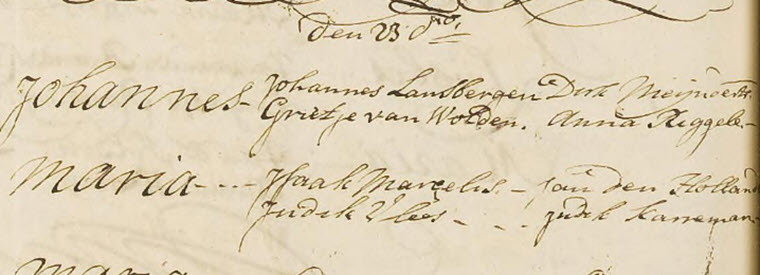 Den 23 do.
Johannes - Johannes Lansbergen Dirk Meijndert
Grietje van Wolden. Anna Kiggele -
Maria - - - Isaak Marcelis. - Jan den Holland
Judik Vlees - - - Judik Kanneman
Maria